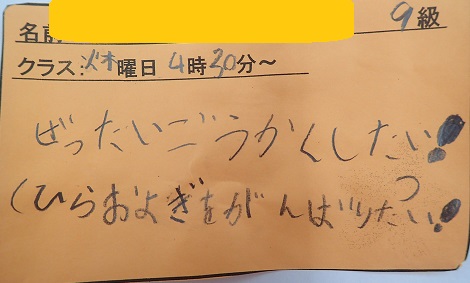 名前 9級
クラス:火木曜日 4時30分~
ぜったいごうかくしたい!
(ひらおよぎをがんばりたい!)